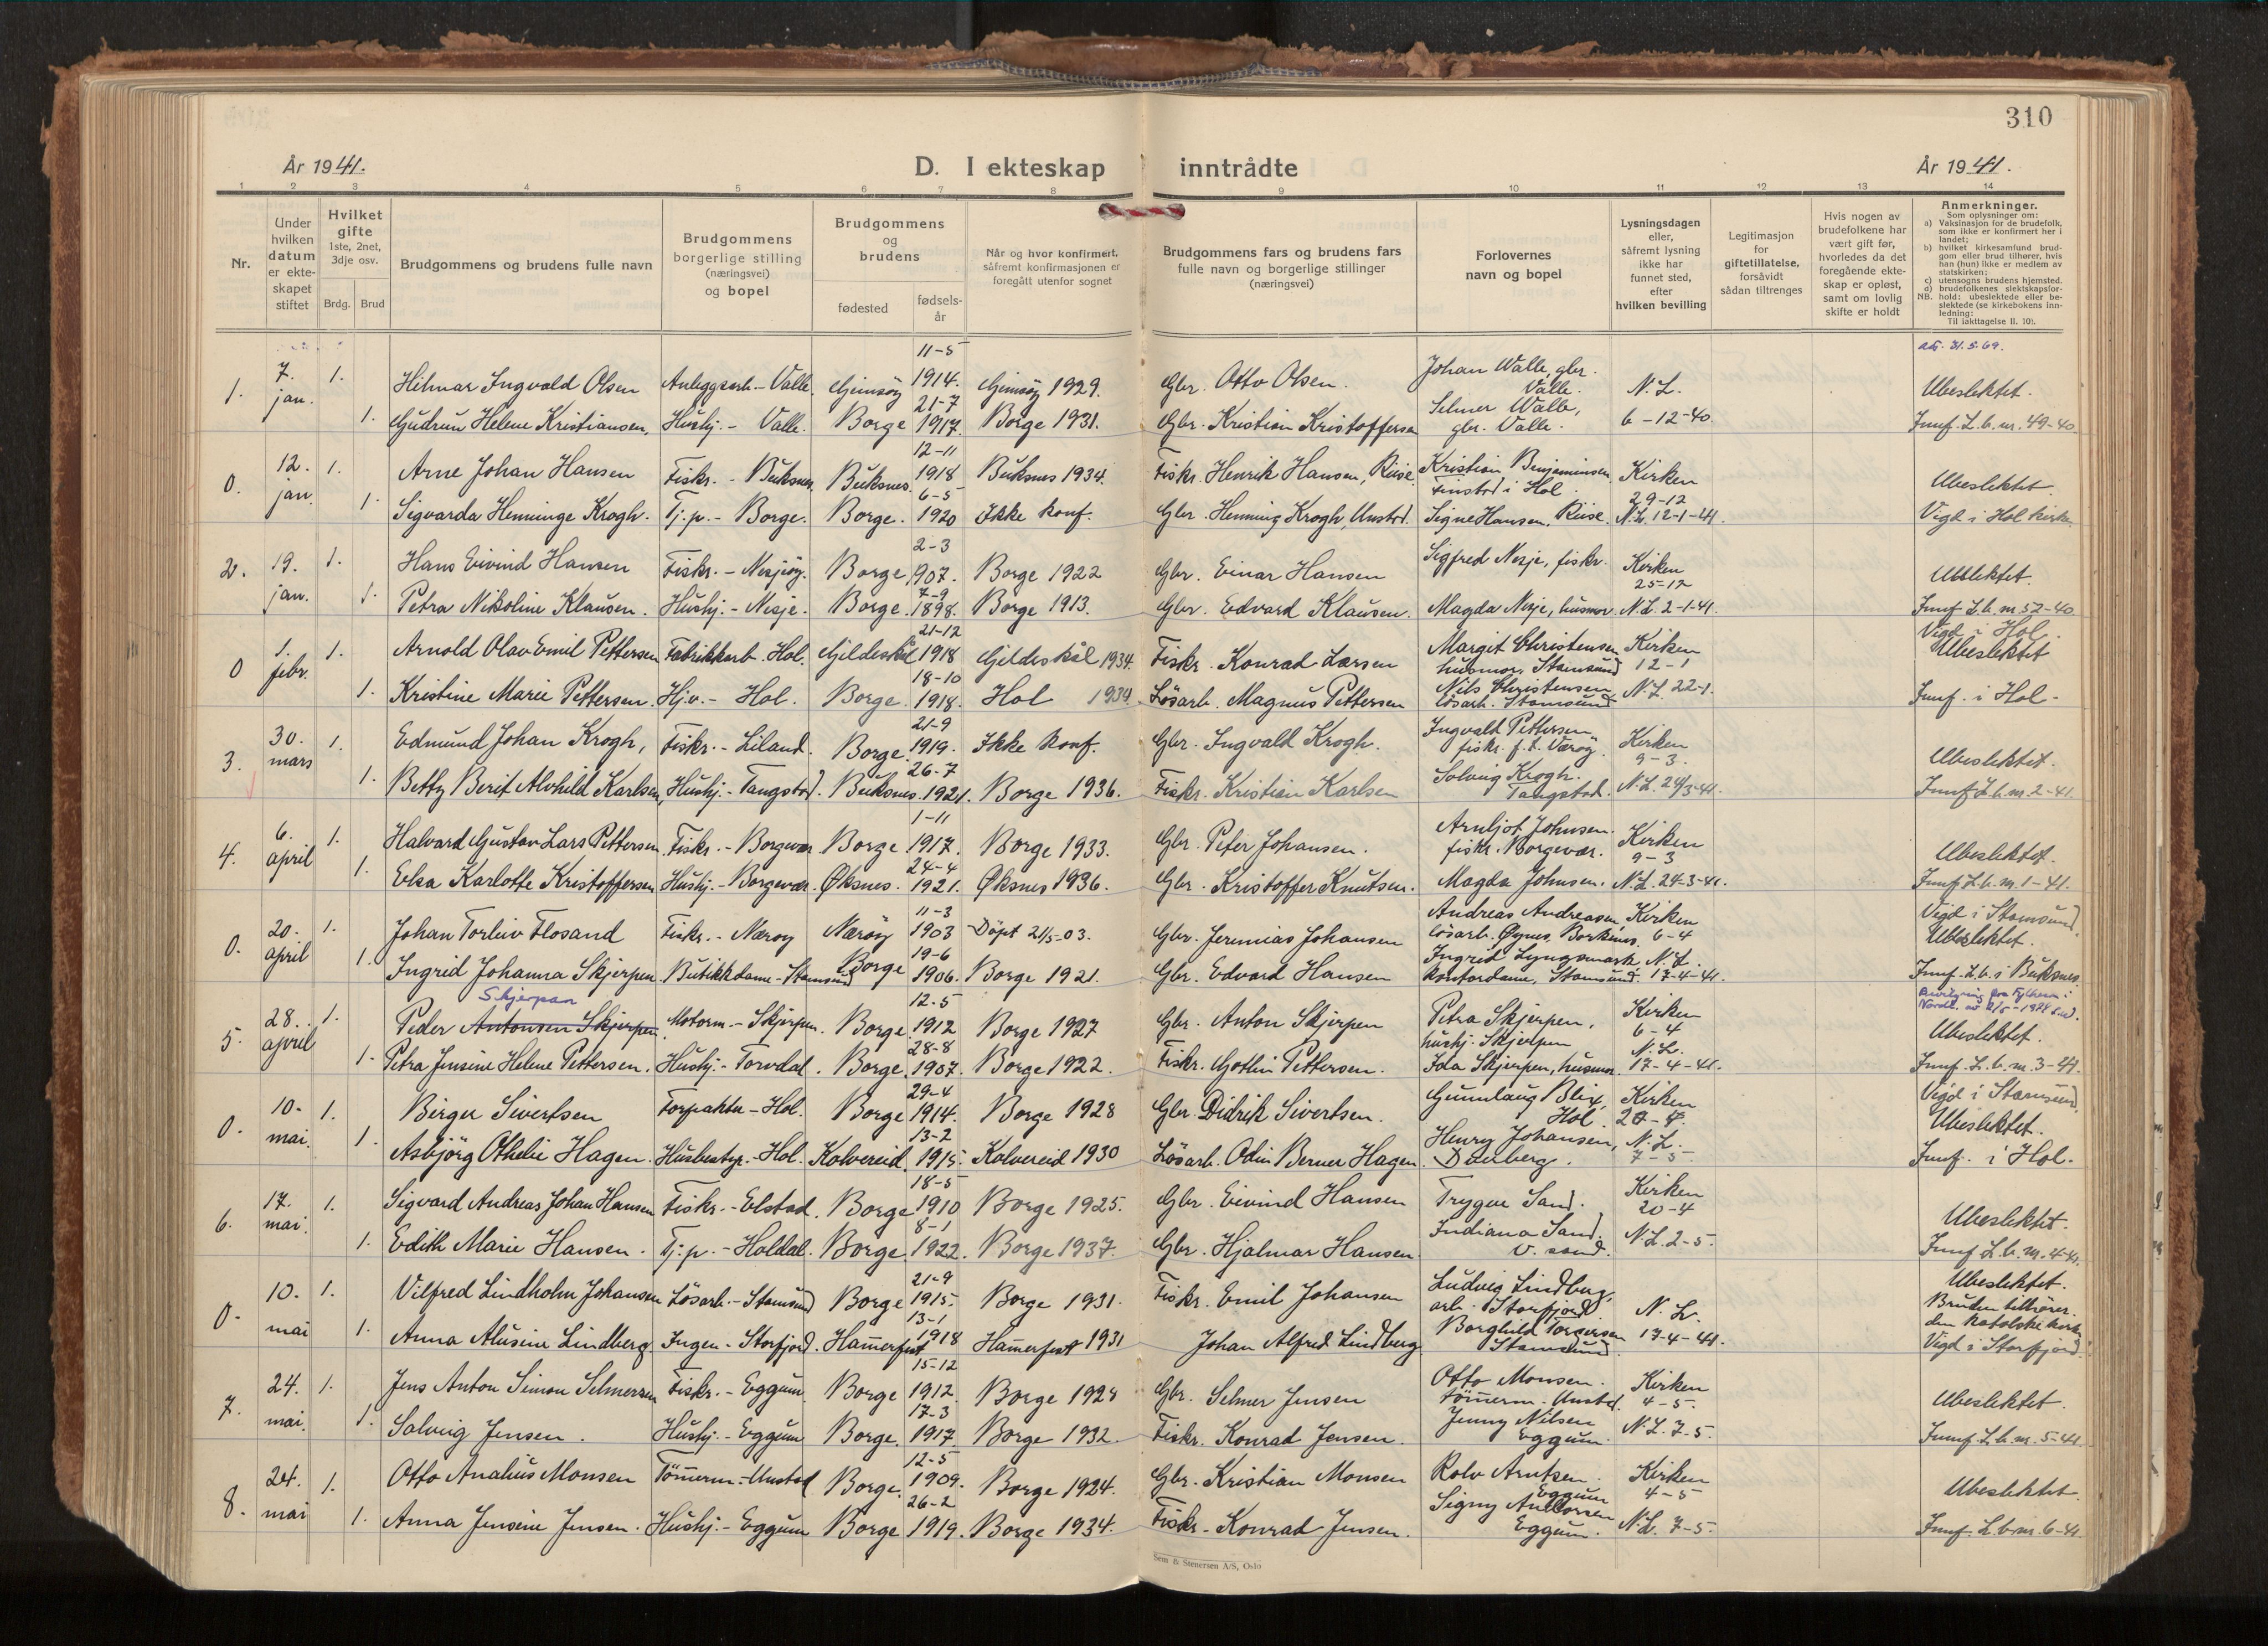 310
År 1941.
D. I ekteskap inntrådte
År 1941.
1 2 3 4 5 6 7 8 9 10 11 12 13 14
Nr.
Under
hvilken
datum
er ekte-
skapet
stiftet
Hvilket
gifte
1ste, 2net,
3dje osv.
Brdg. Brud
Brudgommens og brudens fulle navn
Brudgommens
borgerlige stilling
(næringsvei)
og bopel
Brudgommens
og
brudens
fødested
fødsels-
år
Når og hvor konfirmert,
såfremt konfirmasjonen er
foregått utenfor sognet
Brudgommens fars og brudens fars
fulle navn og borgerlige stillinger
(næringsvei)
Forlovernes
navn og bopel
Lysningsdagen
eller,
såfremt lysning
ikke har
funnet sted,
efter
hvilken bevilling
Legitimasjon
for
giftetillatelse,
forsåvidt
sådan tiltrenges
Hvis nogen av
brudefolkene har
vært gift før,
hvorledes da det
foregående ekte-
skap er opløst,
samt om lovlig
skifte er holdt
Anmerkninger.
Som oplysninger om:
a) Vaksinasjon for de brudefolk,
som ikke er konfirmert her i
landet;
b) hvilket kirkesamfund brud-
gom eller brud tilhører, hvis
han (hun) ikke er medlem av
statskirken;
c) utensogns brudens hjemsted.
d) brudefolkenes slektskapsfor-
NB. hold: ubeslektede eller be-
slektede (se kirkebokens inn-
ledning:
Til iakttagelse II. 10).
1. 7. jan. 1. Hilmar Ingvald Olsen Anleggsarb. - Valle. Gimsøy 11-5 1914. Gimsøy 1929. Gbr. Otto Olsen. Johan Valle, gbr. Valle. N.L. Ubeslektet.
1. Gudrun Helene Kristiansen, Hushj. - Valle. Borge 21-7 1917. Borge 1931. Gbr. Kristian Kristoffersen Selmer Valle, gbr. Valle. 6-12-40. Innf. L.b. nr. 49-40.
0. 12. jan. 1. Arne Johan Hansen Fiskr. - Buksnes. Buksnes. 12-11 1918 Buksnes 1934. Fiskr. Henrik Hansen, Riise. Kristian Benjaminsen Finstad i Hol. Kirken 29-12 Ubeslektet.
1. Sigvarda Henninge Krogh. Tj.p. - Borge. Borge. 6-5 1920 Ikke konf. Gbr. Henning Krogh, Unstad. Signe Hansen, Riise. N.L. 12-1-41. Vigd i Hol kirke.
2. 19. jan. 1. Hans Eivind Hansen Fiskr. - Nesjøy. Borge, 2-3 1907. Borge 1922 Gbr. Einar Hansen Sigfred Nesje, fiskr. Kirken 25-12 Ubeslektet.
1. Petra Nikoline Klausen. Hushj. - Nesje. Borge. 7-9 1898. Borge 1913. Gbr. Edvard Klausen. Magda Nesje, husmor. N.L. 2-1-41. Innf. L.b. nr. 52-40.
0 1. febr. 1. Arnold Olav Emil Pettersen Fabrikkarb. Hol. Gildeskål 21-12 1918 Gildeskål 1934. Fiskr. Konrad Larsen Margit Christensen husmor, Stamsund Kirken 12-1 Vigd i Hol. Ubeslektet
1. Kristine Marie Pettersen. Hj.v. - Hol. Borge 18-10 1918. Hol 1934. Løsarb. Magnus Pettersen Nils Christensen løsarb. Stamsund N.L. 22-1. Innf. i Hol.
3. 30. mars 1. Edmund Johan Krogh, Fiskr. - Liland. Borge. 21-9 1919. Ikke konf. Gbr. Ingvald Krogh. Ingvald Pettersen fiskr. f.t. Værøy. Kirken 9-3. Ubeslektet.
1. Betty Berit Alvhild Karlsen, Hushj. - Tangstad. Buksnes. 26-7 1921. Borge 1936. Fiskr. Kristian Karlsen Solveig Krogh. Tangstad. N.L. 24/3-41. Innf. L.b. nr. 2-41.
4. 6. april 1. Halvard Gustav Lars Pettersen, Fiskr. - Borgevær. Borge 1-11 1917. Borge 1933. Gbr. Peter Johansen. Arnljot Johnsen. fiskr. Borgevær. Kirken 9-3 Ubeslektet.
1. Elsa Karlotte Kristoffersen Hushj. - Borgevær. Øksnes. 24-4 1921. Øksnes 1936. Gbr. Kristoffer Knutsen. Magda Johnsen. N.L. 24-3-41. Innf. L.b. nr. 1-41.
0. 20. april 1. Johan Torleiv Flosand Fiskr. - Nærøy Nærøy 11-3 1903 Døpt 21/5-03. Gbr. Jeremias Johansen Andreas Andreasen løsarb. Øynes, Borknes. Kirken 6-4 Vigd i Stamsund. Ubeslektet.
1. Ingrid Johanna Skjerpen. Butikkdame - Stamsund Borge 19-6 1906. Borge 1921. Gbr. Edvard Hansen Ingrid Lyngsmark kontordame, Stamsund. N.L. 17-4-41. Innf. L.b. i Buksnes.
5. 28. april 1. Peder Antonsen Skjerpen Skjerpan Motorm. - Skjerpen. Borge 12-5 1912 Borge 1927 Gbr. Anton Skjerpen Petra Skjerpen, hushj. Skjerpen Kirken 6-4 Ubeslektet.
1. Petra Jensine Helene Pettersen. Hushj. - Torvdal. Borge. 28-8 1907. Borge 1922. Fiskr. Gotlin Pettersen. Ida Skjerpen, husmor. N.L. 17-4-41. Innf. L.b. nr. 3-41.
0. 10. mai. 1. Birger Sivertsen Forpakter - Hol. Borge 29-4 1914. Borge 1928 Gbr. Didrik Sivertsen. Gunnlaug Blix, Hol. Kirken 20-4. Vigd i Stamsund. Ubeslektet.
1. Asbjørg Othelie Hagen. Husbestyr. - Hol. Kolvereid. 13-2 1915. Kolvereid 1930 Løsarb. Odin Berner Hagen. Henry Johansen, N.L. 7-5 Innf. i Hol.
6. 17. mai. 1. Sigvard Andreas Johan Hansen Fiskr. - Elstad. Borge 18-5 1910 Borge 1925. Gbr. Eivind Hansen Trygve Sand. Kirken 20-4 Ubeslektet.
1. Edith Marie Hansen. Tj.p. - Haldal. Borge. 8-1 1922. Borge 1937. Gbr. Hjalmar Hansen. Indiana Sand. V. sand. N.L. 2-5. Innf. L.b. nr. 4-41.
0. 10. mai 1. Vilfred Lindholm Johansen Løsarb. - Stamsund Borge 21-9 1915. Borge 1931. Fiskr. Emil Johansen Ludvig Lindberg, arb. Storfjord N.L. Ubeslektet. Bruden tilhører den katolske kirke
1. Anna Alusine Lindberg. Ingen - Storfjord. Hammerfest 13-1 1918 Hammerfest 1931 Johan Alfred Lindberg Borghild Torgersen Stamsund. 17-4-41. Vigd i Storfjord.
7. 24. mai. 1. Jens Anton Simon Selmersen Fiskr. - Eggum. Borge 15-12 1912. Borge 1928 Gbr. Selmer Jensen Otto Monsen. tømerm. Unstad. Kirken 4-5. Ubeslektet.
1. Solveig Jensen. Hushj. - Eggum Borge. 17-3 1917. Borge 1932. Fiskr. Konrad Jensen. Jenny Nilsen Eggum. N.L. 7-5. Innf. L.b. nr. 5-41.
8. 24. mai 1. Otto Analius Monsen Tømerm. - Unstad Borge. 12-5 1909. Borge 1924. Gbr. Kristian Monsen Rolv Arntsen. Eggum Kirken 4-5 Ubeslektet.
1. Anna Jensine Jensen. Hushj. - Eggum Borge 26-2 1919. Borge 1934. Fiskr. Konrad Jensen. Signy Eggum. N.L. 7-5. Innf. L.b. nr. 6-41.
Sem & Stenersen A/S, Oslo